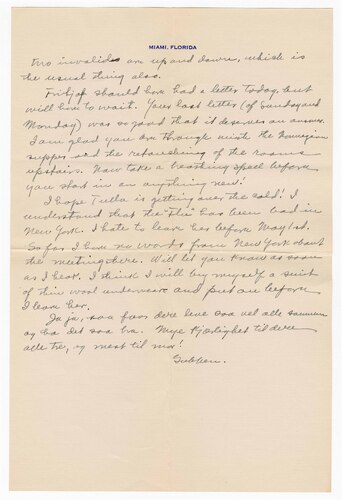 MIAMI, FLORIDA
two invalids are up and down, which is
the usual thing also.
Fritjof should have had a letter today, but
will have to wait. Your last letter (of Sunday and
Monday) was so good that it deserves an answer.
I am glad you are through with the Norwegian
supper and the refurnishing of the rooms
upstairs. Now take a breathing spell before
you start in on anything new!
I hope Tulla is getting over the cold! I
understand that the Flu has been bad in
New York. I hate to leave her before May 1st.
So far I have no words from New York about
the meeting there. Will let you know as soon
as I hear. I think I will buy myself a suit
of thin wool underwear and put on before
I leave her.
Ja ja, saa faar dere leve saa vel alle sammen
og ha det saa bra. Mye Kjærlighet til dere
alle tre, og mest til mor!